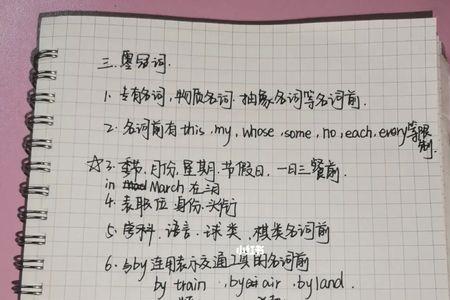 三.零冠词.
1. 专有名词,物质名词.抽象名词等名词前.
2. 名词前有 this, my, whose, some, no, each, every等限制.
☆3. 季节.月份,星期.节假日,一日三餐前.
in March 在三月
4. 表职位.身份.头衔
5. 学科.语言.球类.棋类名词前
小红书
6. 与by连用表示交通工具的名词前
by train .by air .by land.